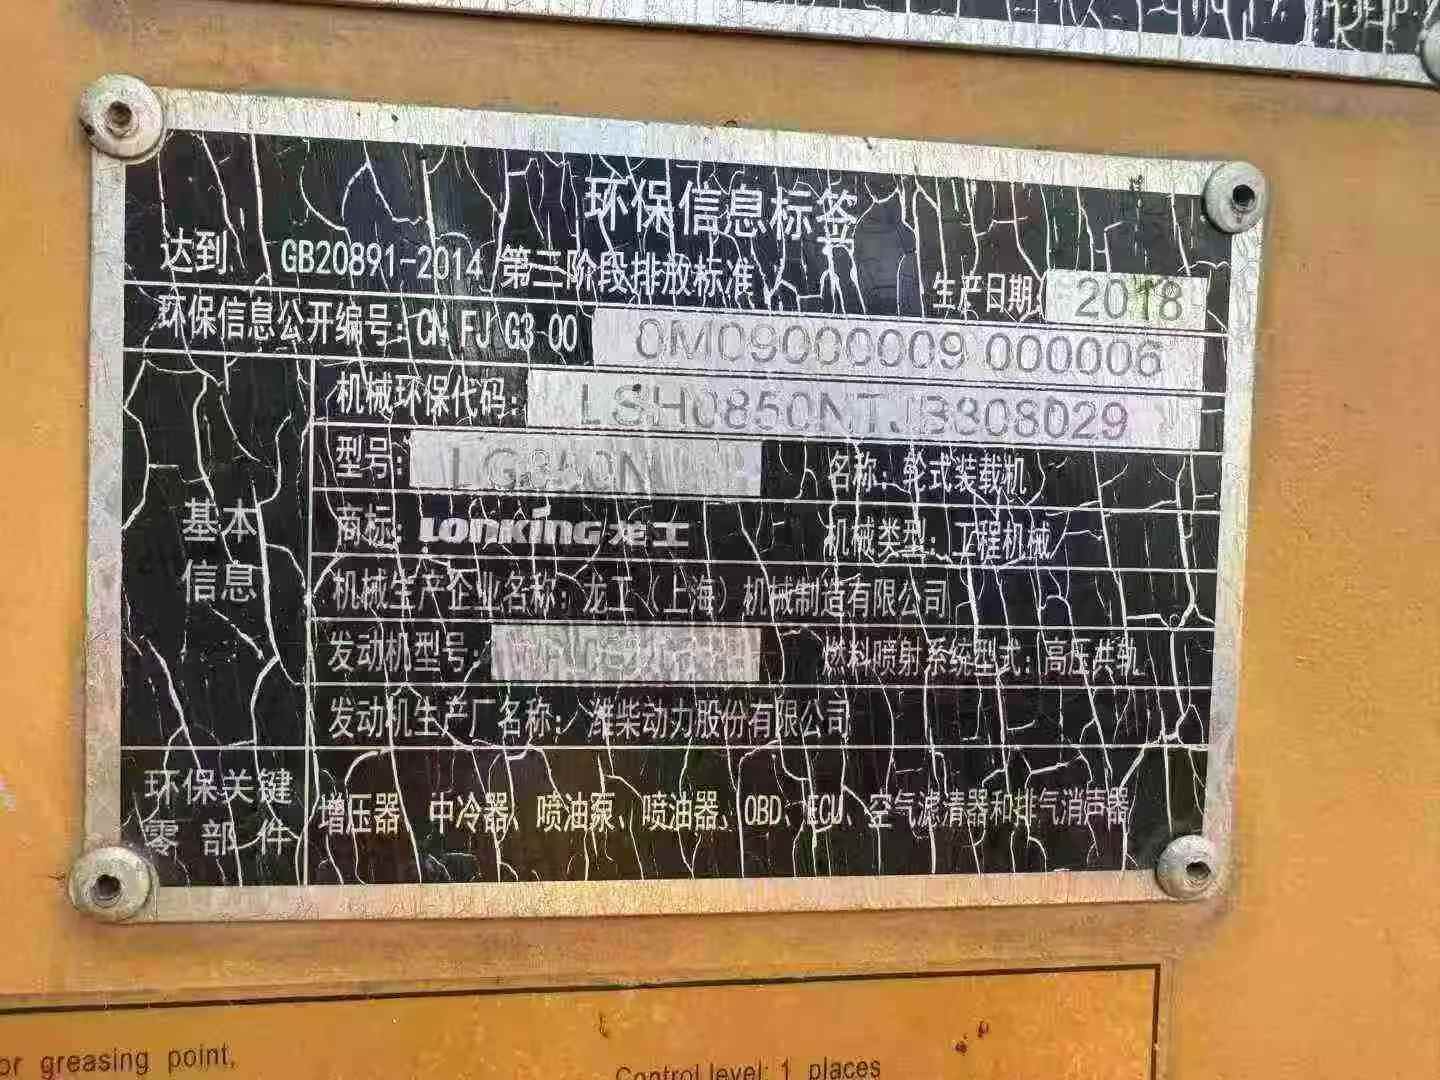 环保信息标签
达到 GB20891-2014 第三阶段排放标准 生产日期: 2018
环保信息公开编号: CN FJ G3 00 0M09000009 000006
基本信息
机械环保代码: LSH0850NTJB808029
型号: 名称: 轮式装载机
商标: LONKING龙工 机械类型: 工程机械
机械生产企业名称: 龙工（上海）机械制造有限公司
发动机型号: 燃料喷射系统型式: 高压共轨
发动机生产厂名称: 潍柴动力股份有限公司
环保关键零部件
增压器、中冷器、喷油泵、喷油器、OBD、ECU、空气滤清器和排气消声器
or greasing point,
Control level: 1 places